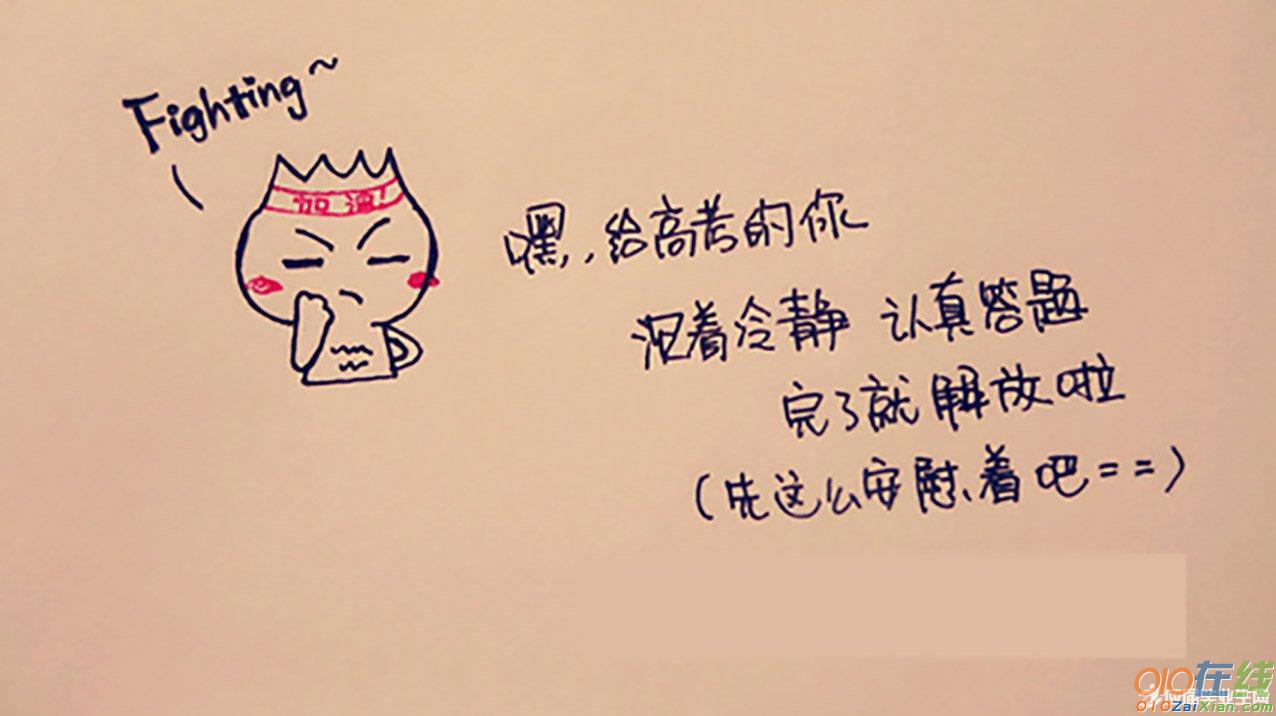 Fighting~
加油!
嘿,,给高考的你
沉着冷静 认真答题
完了就解放啦
(先这么安慰着吧==)
010在线
010ZaiXian.com